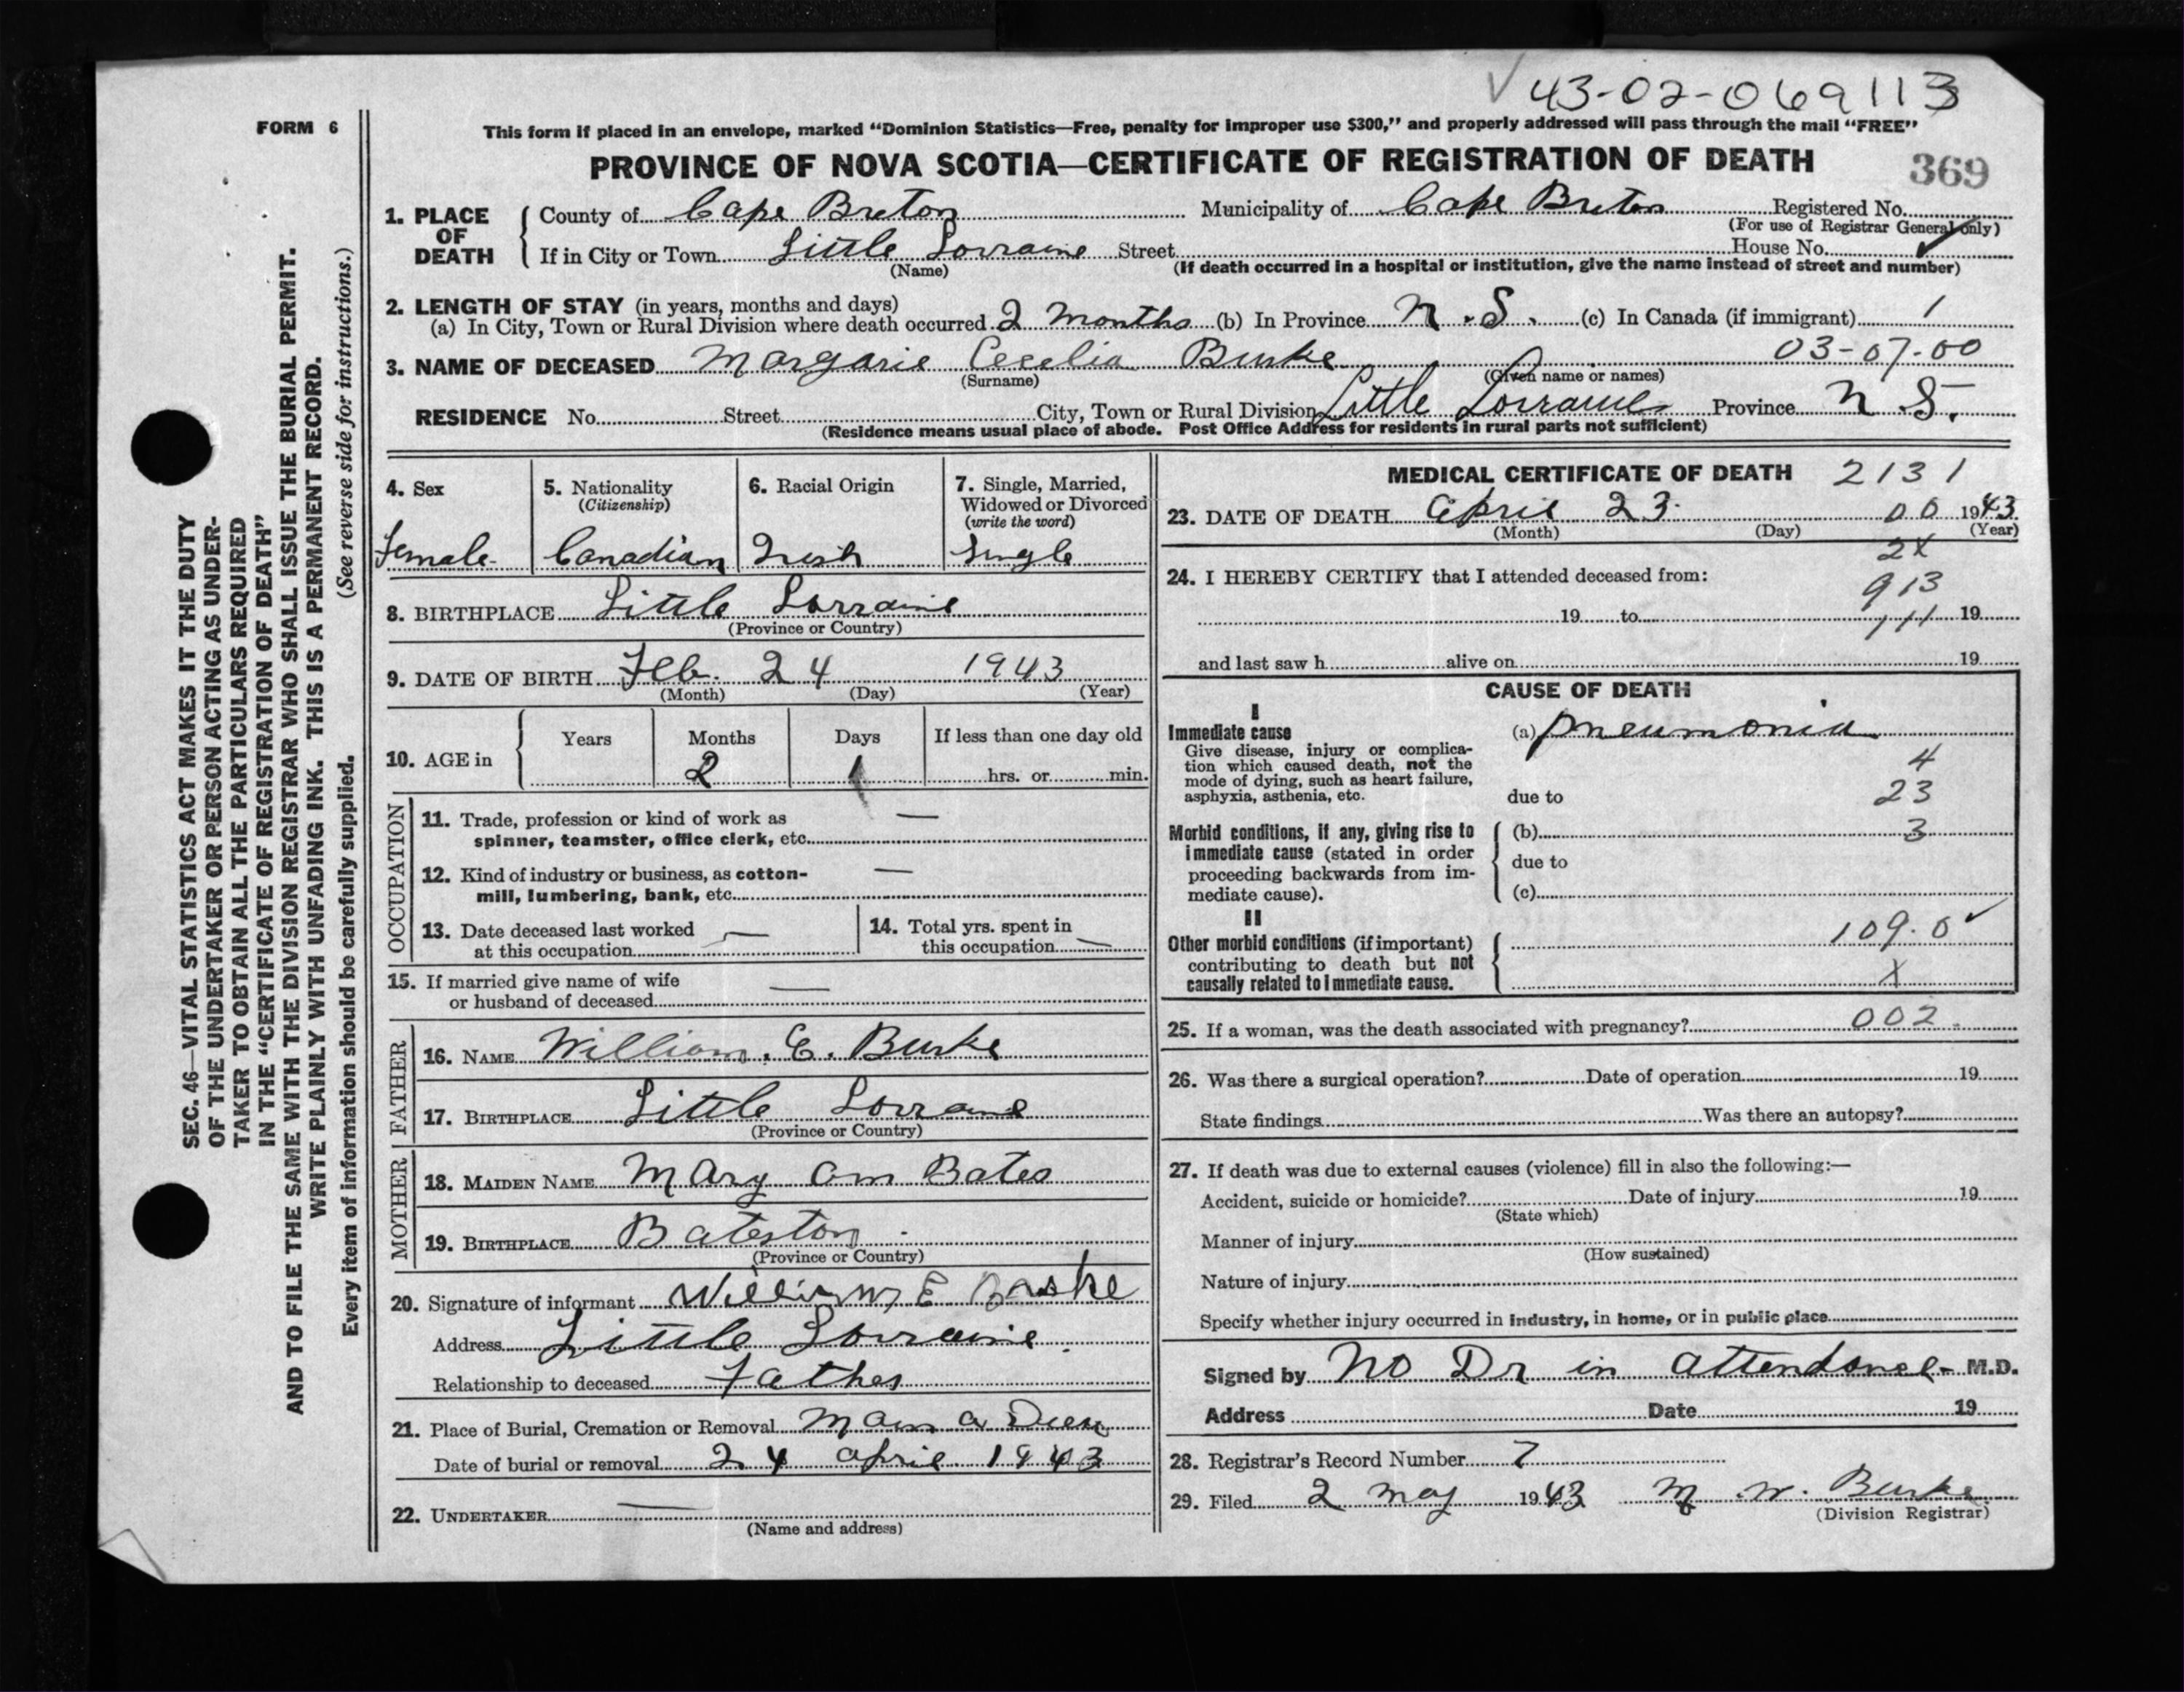 43-02-069113
FORM 6
This form if placed in an envelope, marked "Dominion Statistics—Free, penalty for improper use $300," and properly addressed will pass through the mail "FREE"
PROVINCE OF NOVA SCOTIA—CERTIFICATE OF REGISTRATION OF DEATH
369
1. PLACE OF DEATH
County of Cape Breton Municipality of Cape Breton Registered No.
(For use of Registrar General only)
If in City or Town Little Lorraine Street House No.
(Name) (If death occurred in a hospital or institution, give the name instead of street and number)
2. LENGTH OF STAY (in years, months and days)
(a) In City, Town or Rural Division where death occurred 2 months (b) In Province N.S. (c) In Canada (if immigrant) 1
03-07-00
3. NAME OF DECEASED Margarie Cecelia Burke
(Surname) (Given name or names)
RESIDENCE No. Street City, Town or Rural Division Little Lorraine Province N.S.
(Residence means usual place of abode. Post Office Address for residents in rural parts not sufficient)
4. Sex
Female
5. Nationality
(Citizenship)
Canadian
6. Racial Origin
Irish
7. Single, Married,
Widowed or Divorced
(write the word)
Single
8. BIRTHPLACE Little Lorraine
(Province or Country)
9. DATE OF BIRTH Feb. 24 1943
(Month) (Day) (Year)
10. AGE in
Years Months Days If less than one day old
2 1 hrs. or min.
OCCUPATION
11. Trade, profession or kind of work as —
spinner, teamster, office clerk, etc.
12. Kind of industry or business, as cotton- —
mill, lumbering, bank, etc.
13. Date deceased last worked
at this occupation —
14. Total yrs. spent in
this occupation —
15. If married give name of wife
or husband of deceased —
FATHER
16. NAME William. E. Burke
17. BIRTHPLACE Little Lorraine
(Province or Country)
MOTHER
18. MAIDEN NAME Mary Ann Bates
19. BIRTHPLACE Bateston
(Province or Country)
20. Signature of informant William E Burke
Address Little Lorraine
Relationship to deceased Father
21. Place of Burial, Cremation or Removal Main a Dieu
Date of burial or removal 24 April 1943
22. UNDERTAKER —
(Name and address)
MEDICAL CERTIFICATE OF DEATH 2131
23. DATE OF DEATH April 23 00 1943
(Month) (Day) (Year)
2X
24. I HEREBY CERTIFY that I attended deceased from:
913
19 to 111 19
and last saw h alive on 19
CAUSE OF DEATH
I
Immediate cause
Give disease, injury or complica-
tion which caused death, not the
mode of dying, such as heart failure,
asphyxia, asthenia, etc.
(a) pneumonia
4
due to 23
Morbid conditions, if any, giving rise to
immediate cause (stated in order
proceeding backwards from im-
mediate cause).
(b) 3
due to
(c)
II
Other morbid conditions (if important)
contributing to death but not
causally related to immediate cause.
109.0
X
25. If a woman, was the death associated with pregnancy? 002
26. Was there a surgical operation? Date of operation 19
State findings Was there an autopsy?
27. If death was due to external causes (violence) fill in also the following:—
Accident, suicide or homicide? Date of injury 19
(State which)
Manner of injury
(How sustained)
Nature of injury
Specify whether injury occurred in industry, in home, or in public place
Signed by No Dr in attendance M.D.
Address Date 19
28. Registrar's Record Number 7
29. Filed 2 May 1943 M. W. Burke
(Division Registrar)
SEC. 46—VITAL STATISTICS ACT MAKES IT THE DUTY
OF THE UNDERTAKER OR PERSON ACTING AS UNDER-
TAKER TO OBTAIN ALL THE PARTICULARS REQUIRED
IN THE "CERTIFICATE OF REGISTRATION OF DEATH"
AND TO FILE THE SAME WITH THE DIVISION REGISTRAR WHO SHALL ISSUE THE BURIAL PERMIT.
WRITE PLAINLY WITH UNFADING INK. THIS IS A PERMANENT RECORD.
Every item of information should be carefully supplied. (See reverse side for instructions.)